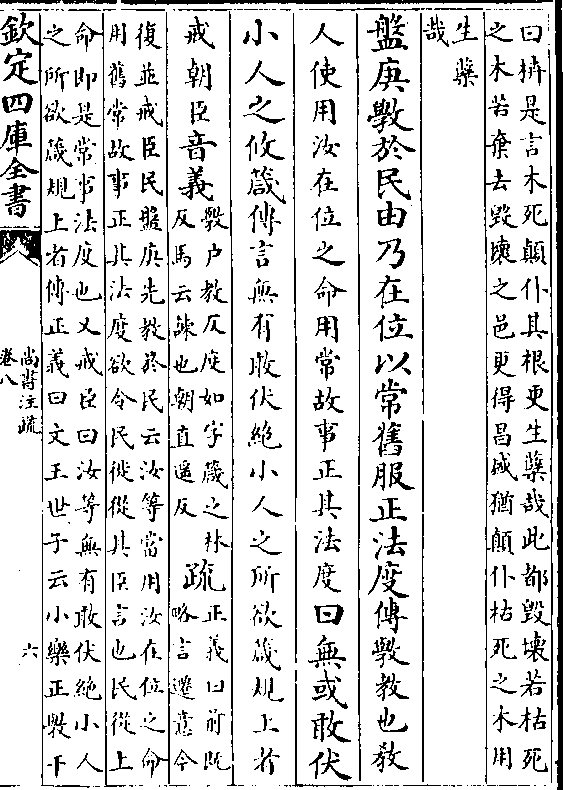 曰枿是言木死顛仆其根更生蘖哉此都毀壞若枯死
之木若棄去毀壞之邑更得昌盛猶顛仆枯死之木用
生蘖
哉
盤庚斆於民由乃在位以常舊服正法度傳斆教也教
人使用汝在位之命用常故事正其法度曰無或敢伏
小人之攸箴傳言無有敢伏絶小人之所欲箴規上者
戒朝臣音義斆户教反度如字箴之林
反馬云諫也朝直遥反
疏正義曰前既
略言遷意今
復並戒臣民盤庚先教於民云汝等當用汝在位之命
用舊常故事正其法度欲令民徙從其臣言也民從上
命即是常事法度也又戒臣曰汝等無有敢伏絶小人
之所欲箴規上者傳正義曰文王世子云小樂正斆干
欽定四庫全書
尚書注疏
卷八
六